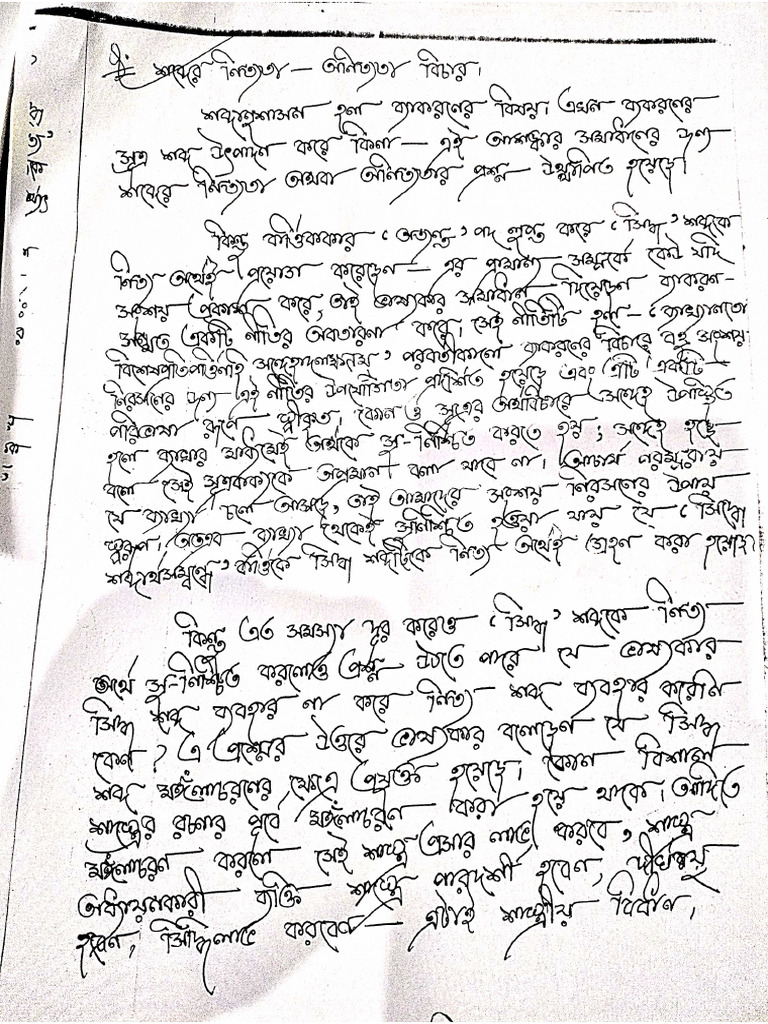 শব্দের নিত্যতা — অনিত্যতা বিচার।
শব্দানুশাসন হল ব্যাকরণের বিষয়। এখন ব্যাকরণের
সূত্র শব্দ উৎপাদন করে কিনা — এই আশঙ্কার সমাধানের জন্য
শব্দের নিত্যতা অথবা অনিত্যতার প্রশ্ন উত্থাপিত হয়েছে।
কিন্তু বার্ত্তিককার ‘অত্যন্ত’ পদ লুপ্ত করে ‘সিদ্ধ’ শব্দকে
নিত্য অর্থেই প্রয়োগ করেছেন — এর প্রামাণ্য সম্পর্কে কেউ যদি
সংশয় প্রকাশ করে, তাই ভাষ্যকার সমাধান দিয়েছেন ব্যাকরণ-
সম্মত একটি নীতির অবতারণা করে। সেই নীতিটি হল — ‘ব্যাখ্যানতো
বিশেষপ্রতিপত্তির্ণহি সন্দেহাদলক্ষণম্’ পরবর্তীকালে ব্যাকরণের বিচারে বহু সংশয়
নিরসনের জন্য এই নীতির উপযোগিতা প্রদর্শিত হয়েছে এবং এটি একটি
পরিভাষা রূপে স্বীকৃত। কোন ও সূত্রের অর্থবিচারে সন্দেহ উপস্থিত
হলে ব্যাখ্যার মাধ্যমেই অর্থকে সু-নিশ্চিত করতে হয়; সন্দেহ হচ্ছে
বলে সেই সূত্রবাক্যকে অপ্রমাণ বলা যাবে না। আচার্য পরম্পরায়
যে ব্যাখ্যা চলে আসছে, তাই আমাদের সংশয় নিরসনের উপায়
স্বরূপ। অতএব ব্যাখ্যা থেকেই সুনিশ্চিত হওয়া যায় যে ‘সিদ্ধে
শব্দার্থসম্বন্ধে’ বার্ত্তিকে সিদ্ধ শব্দটিকে নিত্য অর্থেই গ্রহণ করা হয়েছে।
কিন্তু এত সমস্যা দূর করেও ‘সিদ্ধ’ শব্দকে নিত্য
অর্থে সু-নিশ্চিত করলেও প্রশ্ন উঠতে পারে যে ভাষ্যকার
সিদ্ধ শব্দ ব্যবহার না করে নিত্য শব্দ ব্যবহার করেননি
কেন? এ প্রশ্নের উত্তরে ভাষ্যকার বলেছেন যে সিদ্ধ
শব্দ মঙ্গলাচরণের ক্ষেত্রে প্রযুক্ত হয়েছে। কোন বিশাল
শাস্ত্রের রচনার পূর্বে মঙ্গলাচরণ করা হয়ে থাকে। আদিতে
মঙ্গলাচরণ করলে সেই শাস্ত্র প্রসার লাভ করবে, শাস্ত্র
অধ্যয়নকারী ব্যক্তি শাস্ত্রে পারদর্শী হবেন, দীর্ঘায়ু
হবেন, সিদ্ধিলাভ করবেন — এটাই শাস্ত্রীয় বিধান।